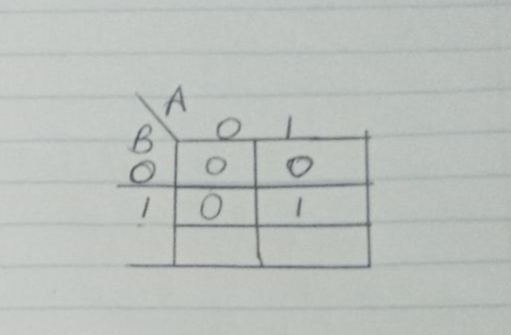 A
B 0 1
0 0 0
1 0 1